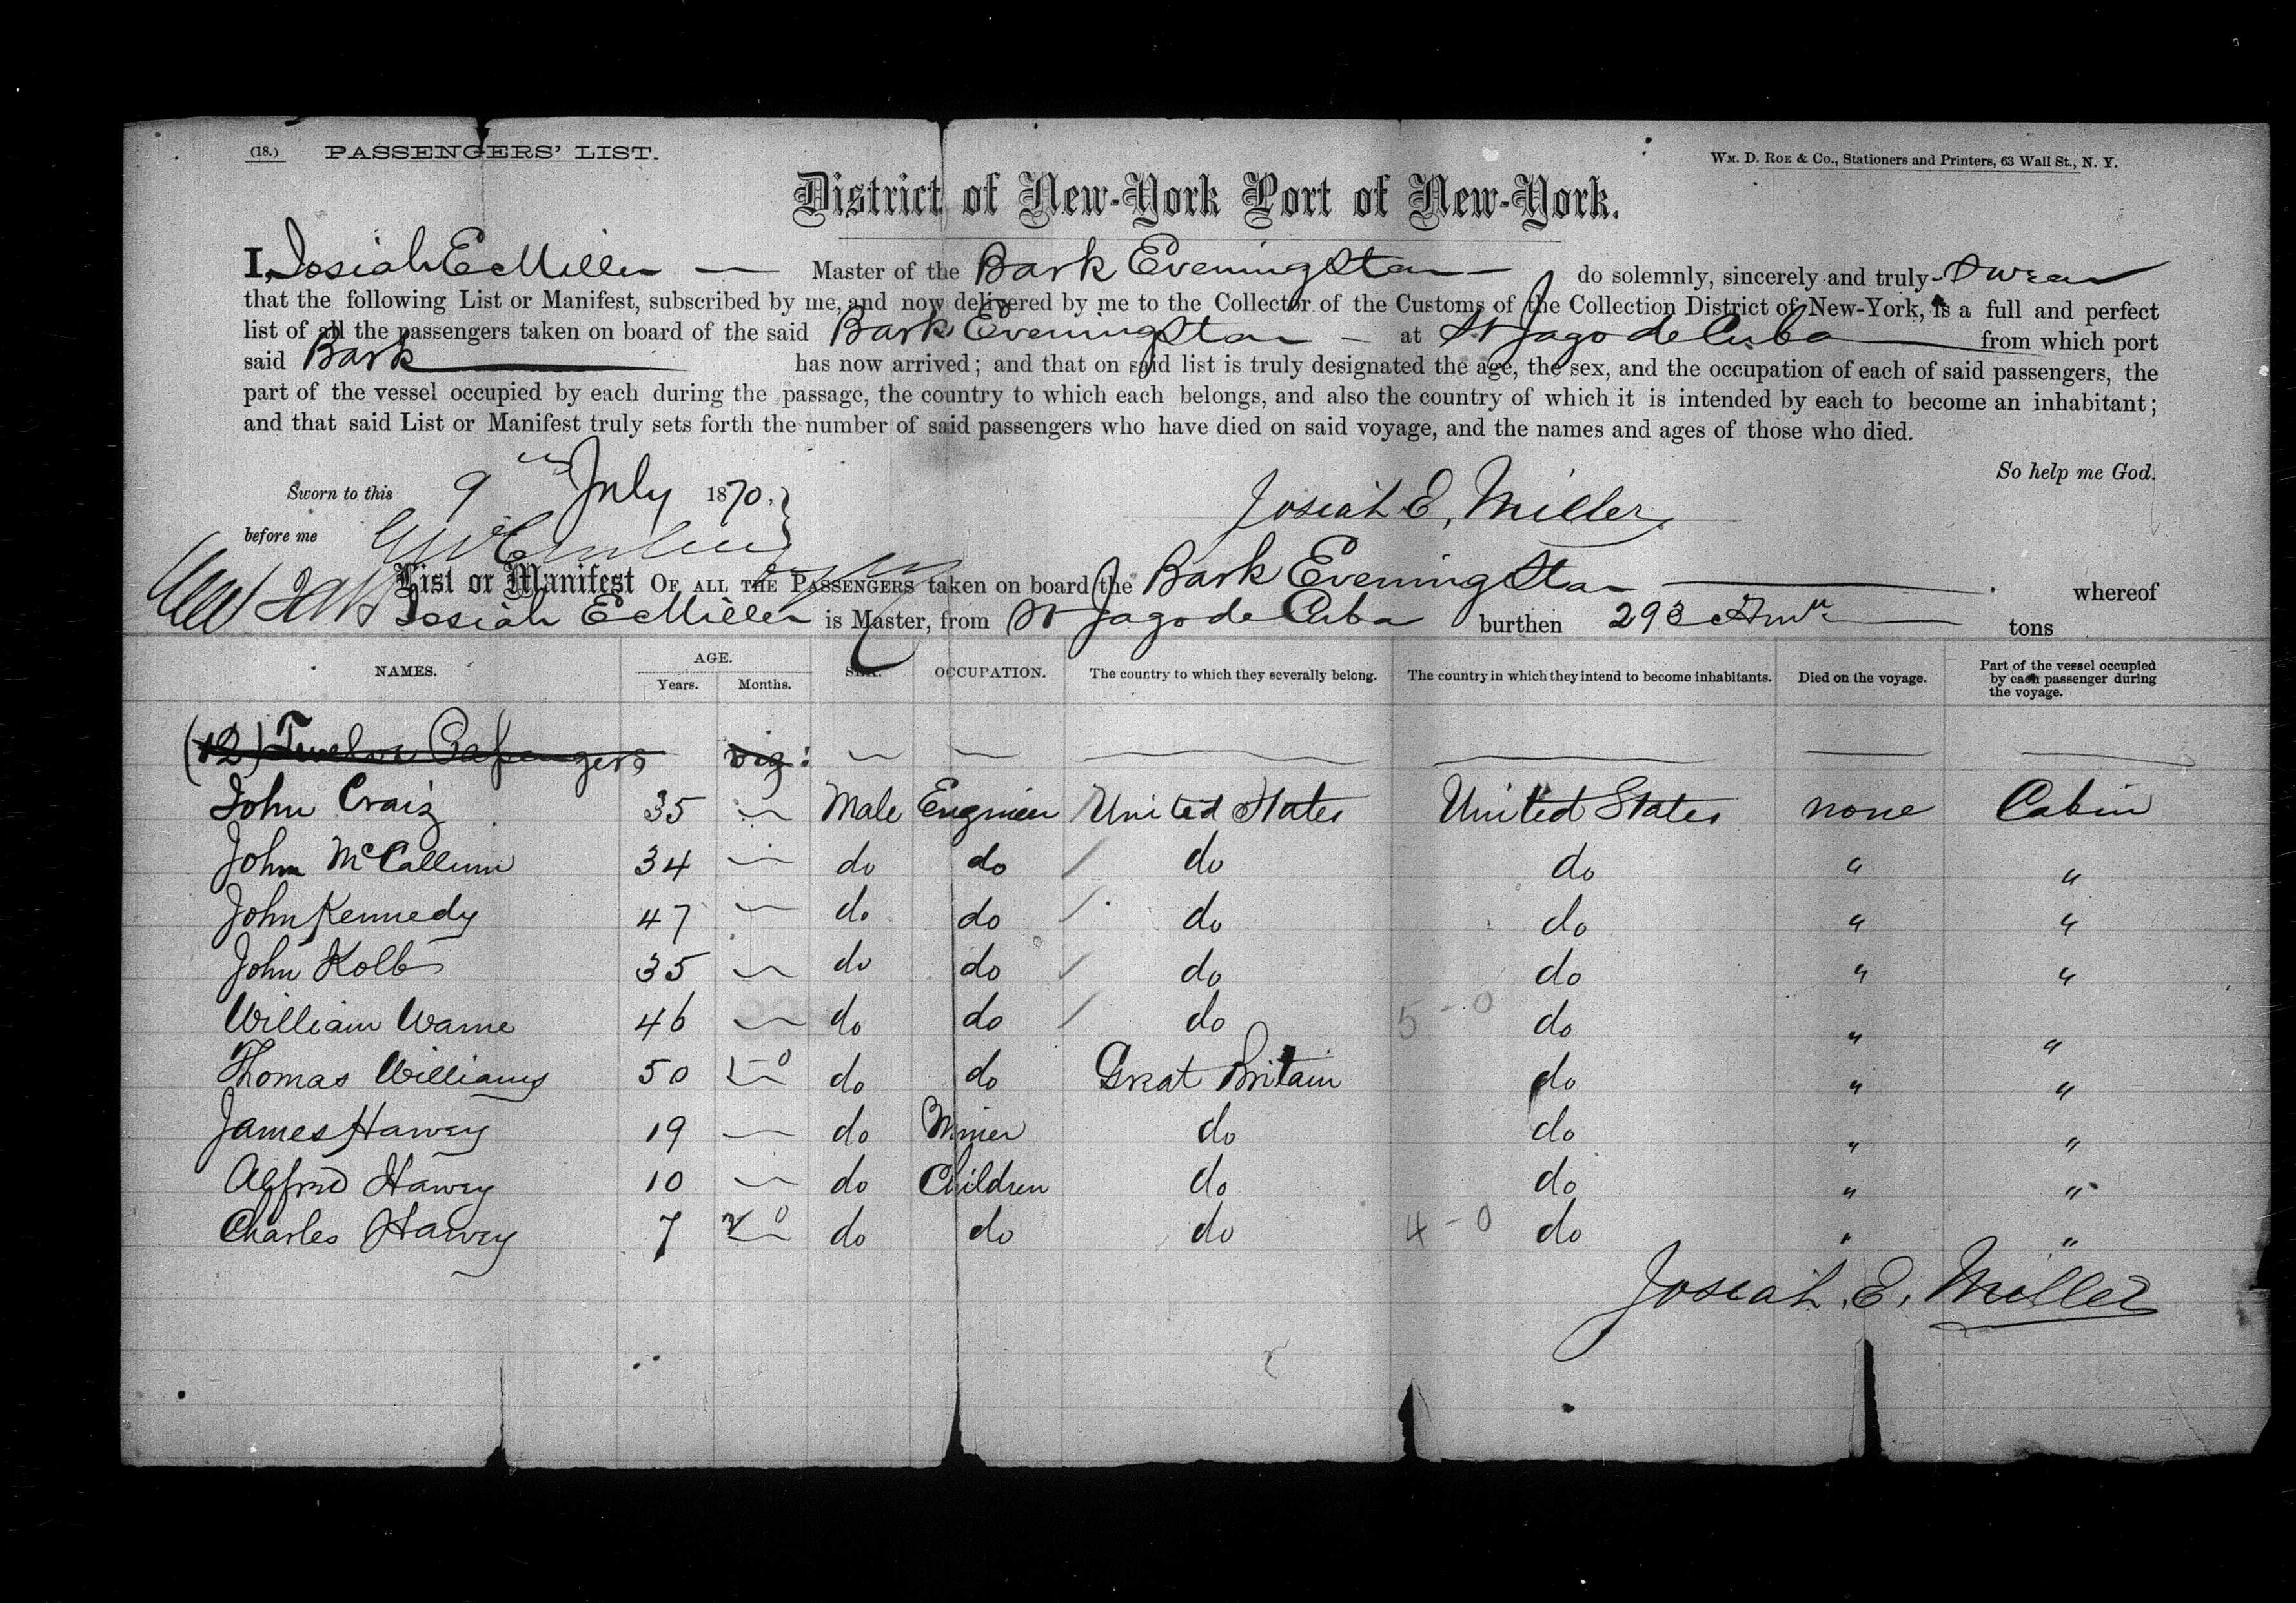 (18.) PASSENGERS' LIST.
WM. D. ROE & CO., Stationers and Printers, 63 Wall St., N. Y.
District of New-York Port of New-York.
I, Josiah E Miller — Master of the Bark Evening Star — do solemnly, sincerely and truly swear
that the following List or Manifest, subscribed by me, and now delivered by me to the Collector of the Customs of the Collection District of New-York, is a full and perfect
list of all the passengers taken on board of the said Bark Evening Star — at St Jago de Cuba from which port
said Bark has now arrived; and that on said list is truly designated the age, the sex, and the occupation of each of said passengers, the
part of the vessel occupied by each during the passage, the country to which each belongs, and also the country of which it is intended by each to become an inhabitant;
and that said List or Manifest truly sets forth the number of said passengers who have died on said voyage, and the names and ages of those who died.
So help me God.
Sworn to this 9th July 1870,
Josiah E. Miller
before me
List or Manifest OF ALL THE PASSENGERS taken on board the Bark Evening Star whereof
Josiah E Miller is Master, from St Jago de Cuba burthen 293 tons
NAMES. AGE. Years. Months. SEX. OCCUPATION. The country to which they severally belong. The country in which they intend to become inhabitants. Died on the voyage. Part of the vessel occupied by each passenger during the voyage.
(12) Twelve Passengers viz: — — — — — —
John Craig 35 — Male Engineer United States United States none Cabin
John McCallum 34 — do do do do " "
John Kennedy 47 — do do do do " "
John Kolb 35 — do do do do " "
William Warne 46 — do do do 5-0 do " "
Thomas Williams 50 5-0 do do Great Britain do " "
James Harvey 19 — do Miner do do " "
Alfred Harvey 10 — do Children do do " "
Charles Harvey 7 do do do 4-0 do " "
Josiah. E. Miller